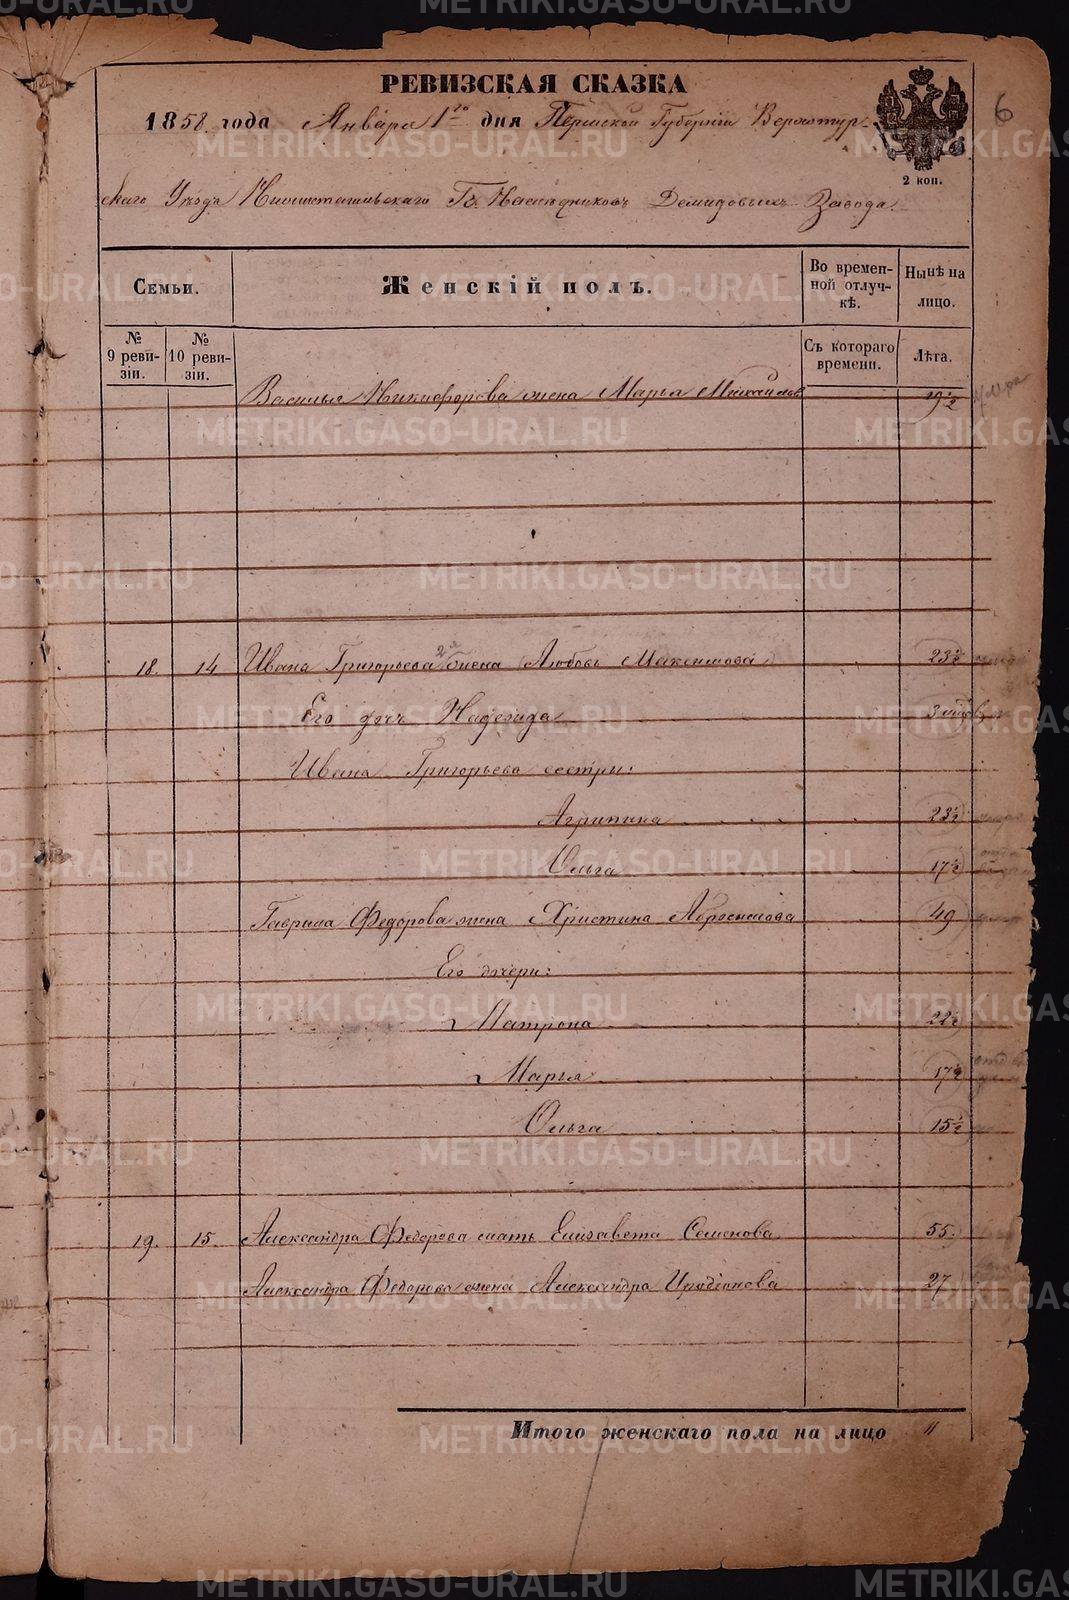 6
РЕВИЗСКАЯ СКАЗКА
1858 года Января 1го дня Пермской Губернiи Верхотур-
2 коп.
скаго Уѣзда Нижнетагильскаго Гг. Наслѣдниковъ Демидовыхъ Завода.
Семьи.
Женскій полъ.
Во времен-
ной отлуч-
кѣ.
Нынѣ на
лицо.
№
9 реви-
зіи.
№
10 реви-
зіи.
Съ котораго
времени.
Лѣта.
Василья Никифорова жена Марья Михайлова 19½
18. 14. Ивана Григорьева 2я жена Любовь Максимова 23½
Его дочь Надежда
Ивана Григорьева сестры:
Агрипина 23½
Ольга 17½
Гаврила Федорова жена Христина Абросимова 49
Его дочери:
Матрона 22½
Марья 17½
Ольга 15½
19. 15. Александра Федорова мать Елизавета Семенова 55.
Александра Федорова жена Александра Иродіонова 27
Итого женскаго пола на лицо 11
METRIKI.GASO-URAL.RU